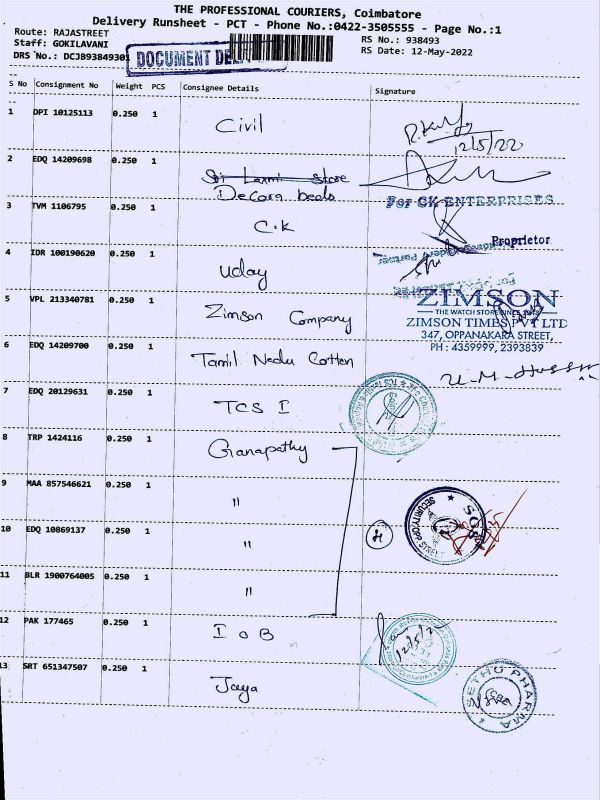 THE PROFESSIONAL COURIERS, Coimbatore
Delivery Runsheet - PCT - Phone No.:0422-3505555 - Page No.:1
Route: RAJASTREET
RS No.: 938493
Staff: GOKILAVANI
RS Date: 12-May-2022
DRS No.: DCJB93849301
DOCUMENT
S No Consignment No Weight PCS Consignee Details Signature
1 DPI 10125113 0.250 1 Civil
12/5/22
2 EDQ 14209698 0.250 1 Sri Laxmi Store
Decora beds
For GK ENTERPRISES
3 TVM 1106795 0.250 1 C.K
Proprietor
4 IDR 100190620 0.250 1 Uday
5 VPL 213340781 0.250 1 Zimson Company
ZIMSON
THE WATCH STORE SINCE 1948
ZIMSON TIMES PVT LTD
347, OPPANAKARA STREET,
PH : 4359999, 2393839
6 EDQ 14209700 0.250 1 Tamil Nadu Cotton
7 EDQ 20129631 0.250 1 TCS I
8 TRP 1424116 0.250 1 Ganapathy
9 MAA 857546621 0.250 1 "
10 EDQ 10869137 0.250 1 "
4
11 BLR 1900764005 0.250 1 "
12 PAK 177465 0.250 1 I O B
12/5/2
13 SRT 651347507 0.250 1 Jaya
SETHU PHARMA